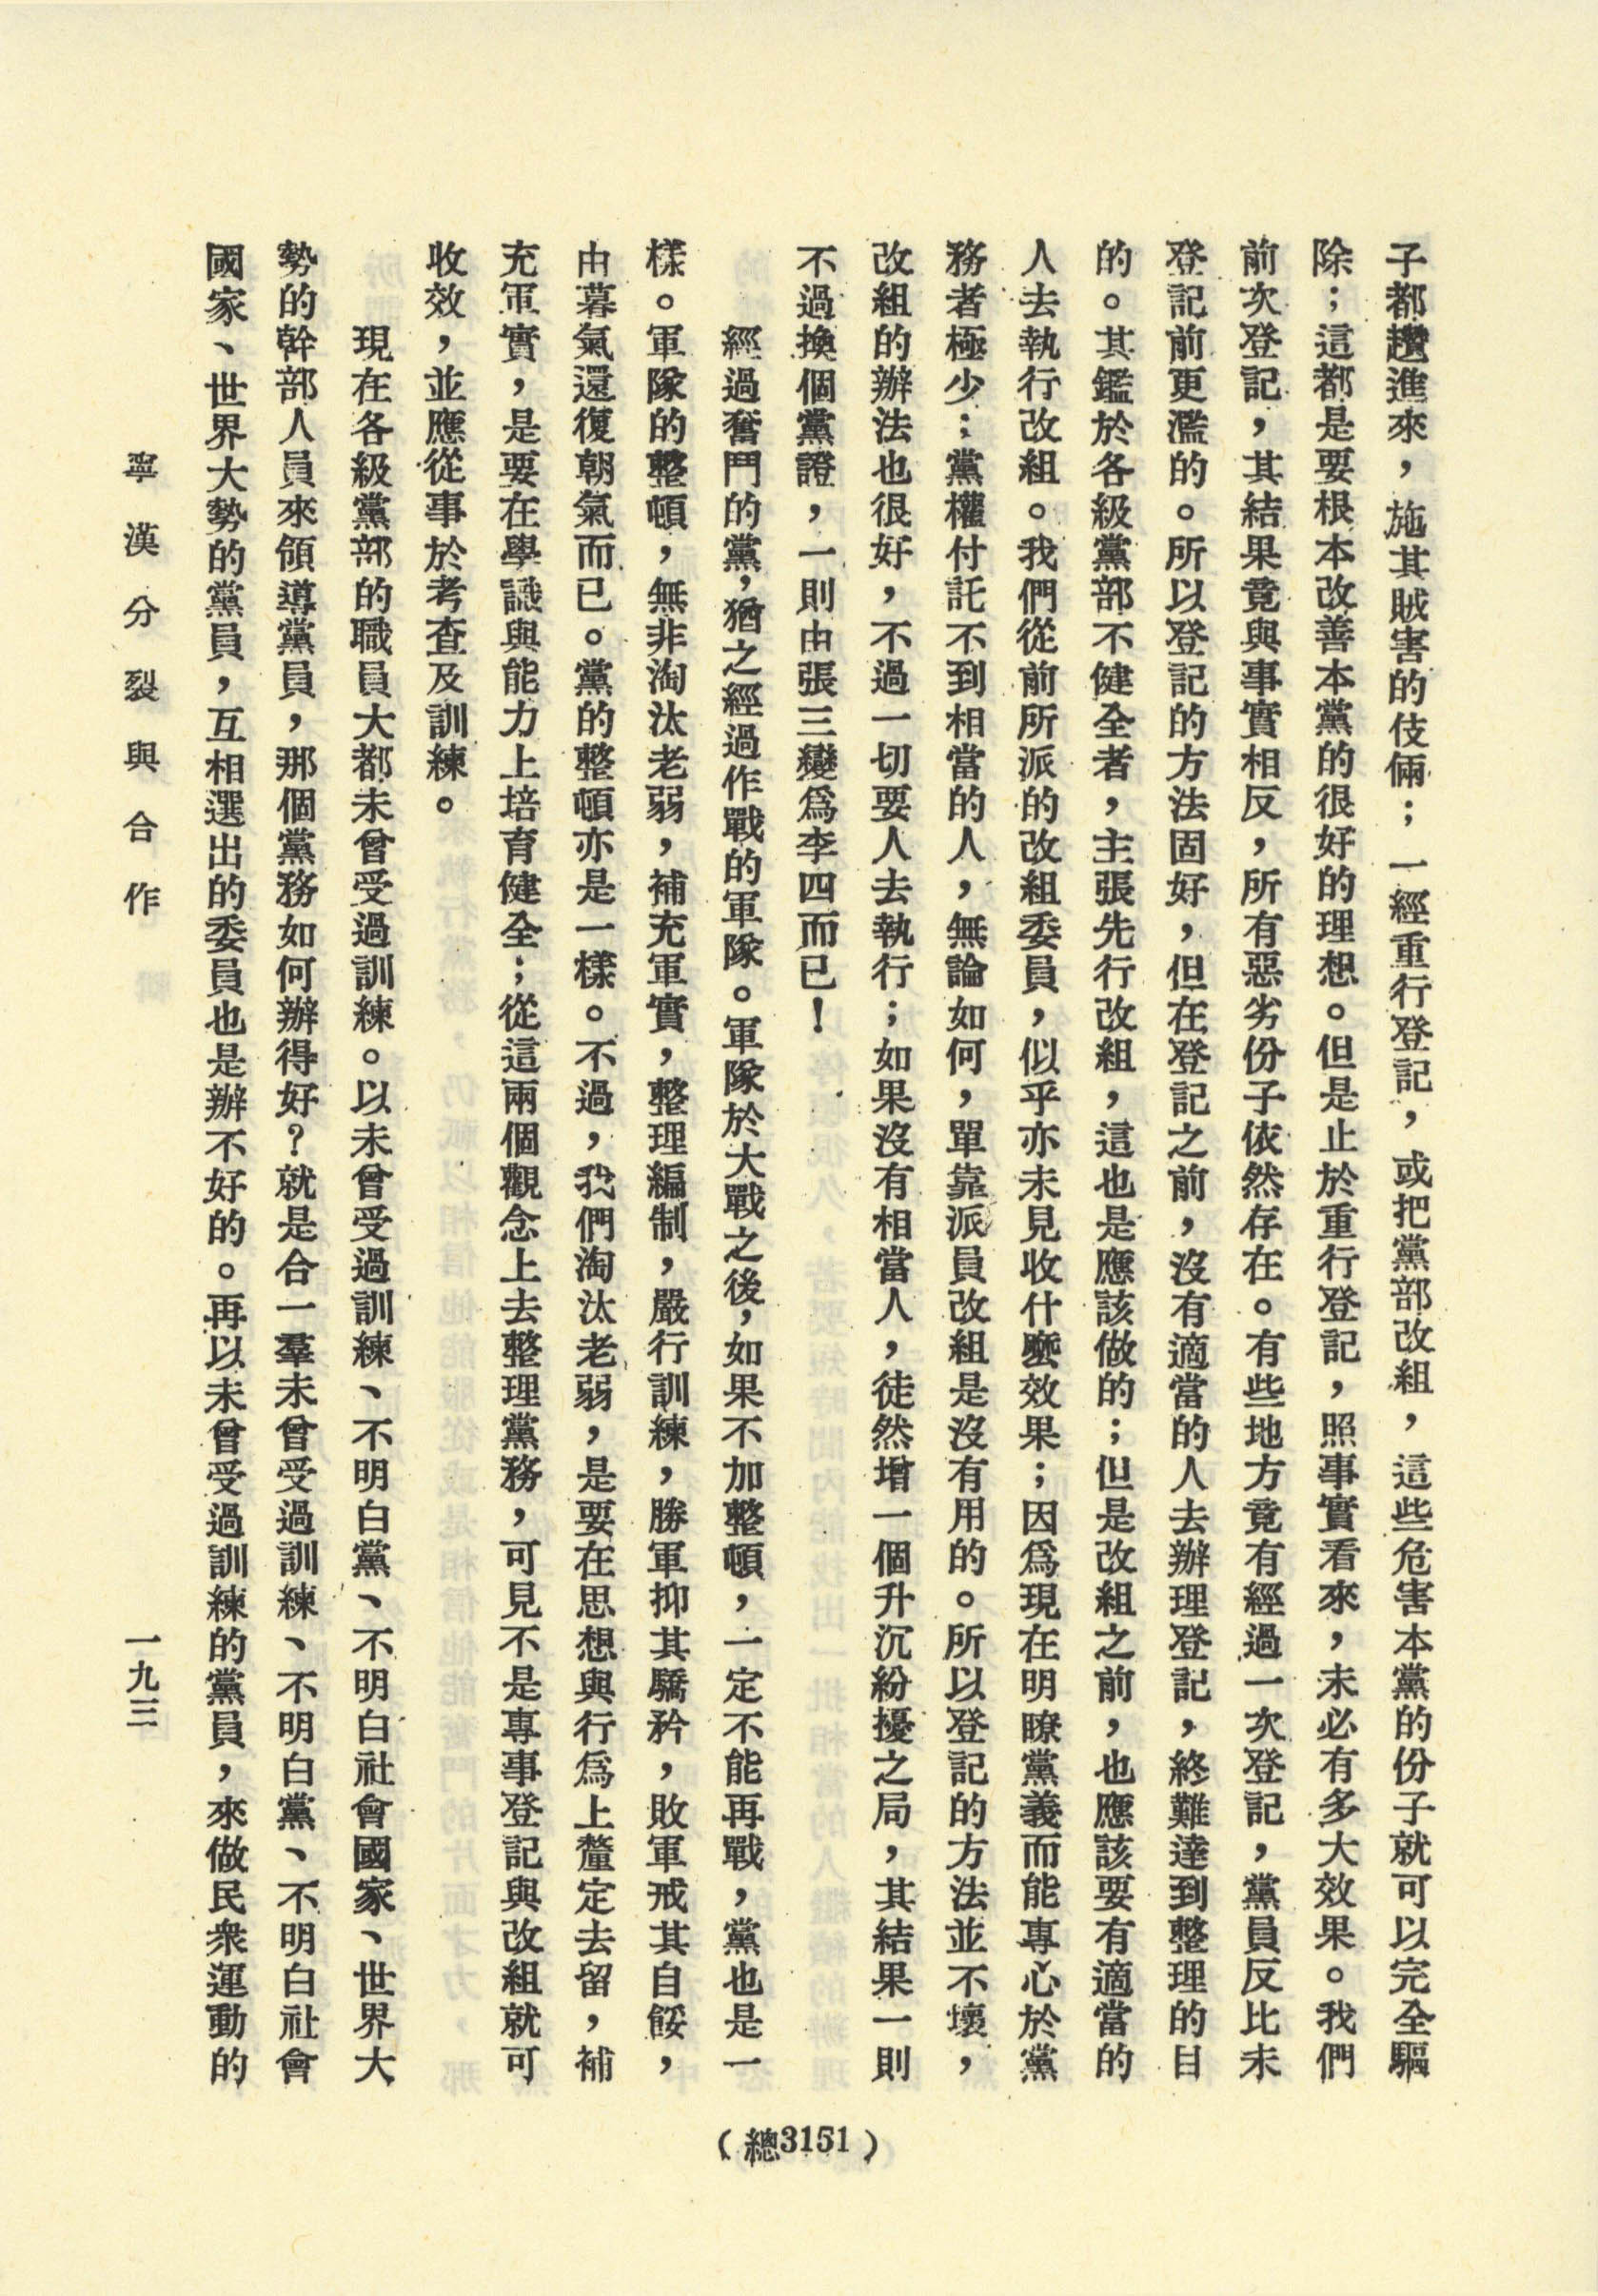 子都鑽進來，施其賊害的伎倆；一經重行登記，或把黨部改組，這些危害本黨的份子就可以完全驅
除；這都是要根本改善本黨的很好的理想。但是止於重行登記，照事實看來，未必有多大效果。我們
前次登記，其結果竟與事實相反，所有惡劣份子依然存在。有些地方竟有經過一次登記，黨員反比未
登記前更濫的。所以登記的方法固好，但在登記之前，沒有適當的人去辦理登記，終難達到整理的目
的。其鑑於各級黨部不健全者，主張先行改組，這也是應該做的；但是改組之前，也應該要有適當的
人去執行改組。我們從前所派的改組委員，似乎亦未見收什麼效果；因爲現在明瞭黨義而能專心於黨
務者極少；黨權付託不到相當的人，無論如何，單靠派員改組是沒有用的。所以登記的方法並不壞，
改組的辦法也很好，不過一切要人去執行；如果沒有相當人，徒然增一個升沉紛擾之局，其結果一則
不過換個黨證，一則由張三變爲李四而已！
經過奮鬥的黨，猶之經過作戰的軍隊。軍隊於大戰之後，如果不加整頓，一定不能再戰，黨也是一
樣。軍隊的整頓，無非淘汰老弱，補充軍實，整理編制，嚴行訓練，勝軍抑其驕矜，敗軍戒其自餒，
由暮氣還復朝氣而已。黨的整頓亦是一樣。不過，我們淘汰老弱，是要在思想與行爲上釐定去留，補
充軍實，是要在學識與能力上培育健全；從這兩個觀念上去整理黨務，可見不是專事登記與改組就可
收效，並應從事於考查及訓練。
現在各級黨部的職員大都未曾受過訓練。以未曾受過訓練、不明白黨、不明白社會國家、世界大
勢的幹部人員來領導黨員，那個黨務如何辦得好？就是合一羣未曾受過訓練、不明白黨、不明白社會
國家、世界大勢的黨員，互相選出的委員也是辦不好的。再以未曾受過訓練的黨員，來做民衆運動的
寧漢分裂與合作
一九三
（總3151）